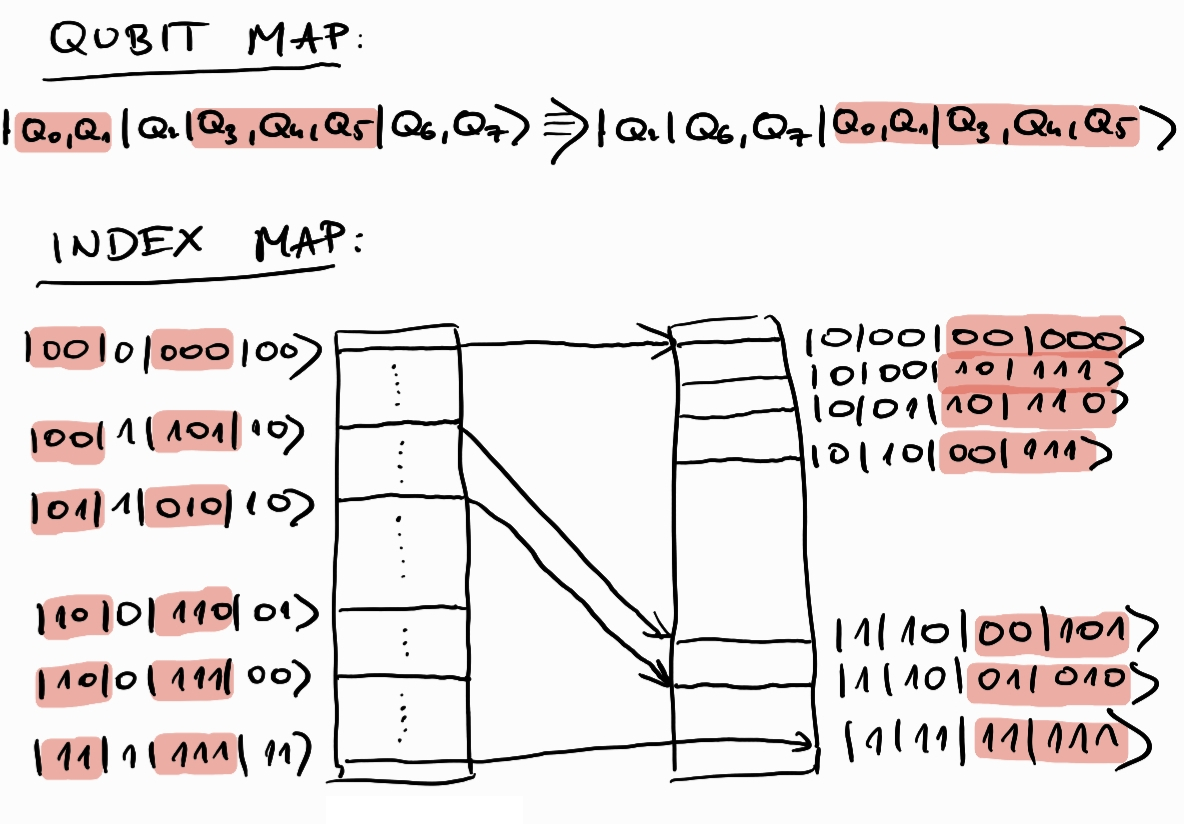 QUBIT MAP:
|Q₀,Q₁|Q₂|Q₃,Q₄,Q₅|Q₆,Q₇⟩ ⇛ |Q₂|Q₆,Q₇|Q₀,Q₁|Q₃,Q₄,Q₅⟩
INDEX MAP:
|00|0|000|00⟩
|00|1|101|10⟩
|01|1|010|10⟩
|10|0|110|01⟩
|10|0|111|00⟩
|11|1|111|11⟩
|0|00|00|000⟩
|0|00|10|111⟩
|0|01|10|110⟩
|0|10|00|111⟩
|1|10|00|101⟩
|1|10|01|010⟩
|1|11|11|111⟩